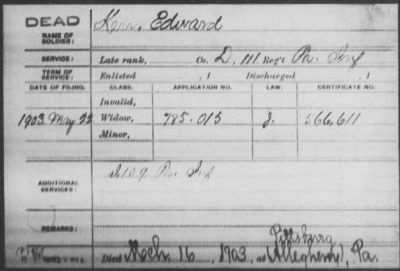 DEAD
Kerr, Edward
NAME OF SOLDIER:
SERVICE: Late rank, Co. D, 111 Reg't Pa. Inf
TERM OF SERVICE: Enlisted , 1 Discharged , 1
DATE OF FILING. CLASS. APPLICATION NO. LAW. CERTIFICATE NO.
Invalid,
1903 May 22 Widow, 785.015 566,611
Minor,
ADDITIONAL SERVICES: 109 Pa. Inf
REMARKS: Pittsburg
Died Mch. 16, 1903, at Allegheny, Pa.